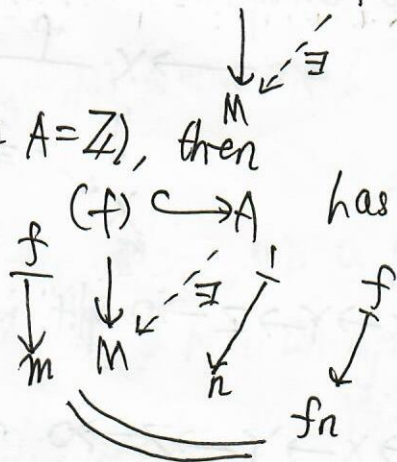 ∃
M
A=ℤ), then
(f) ↪ A has
f 1 f
∃
m M n
fn